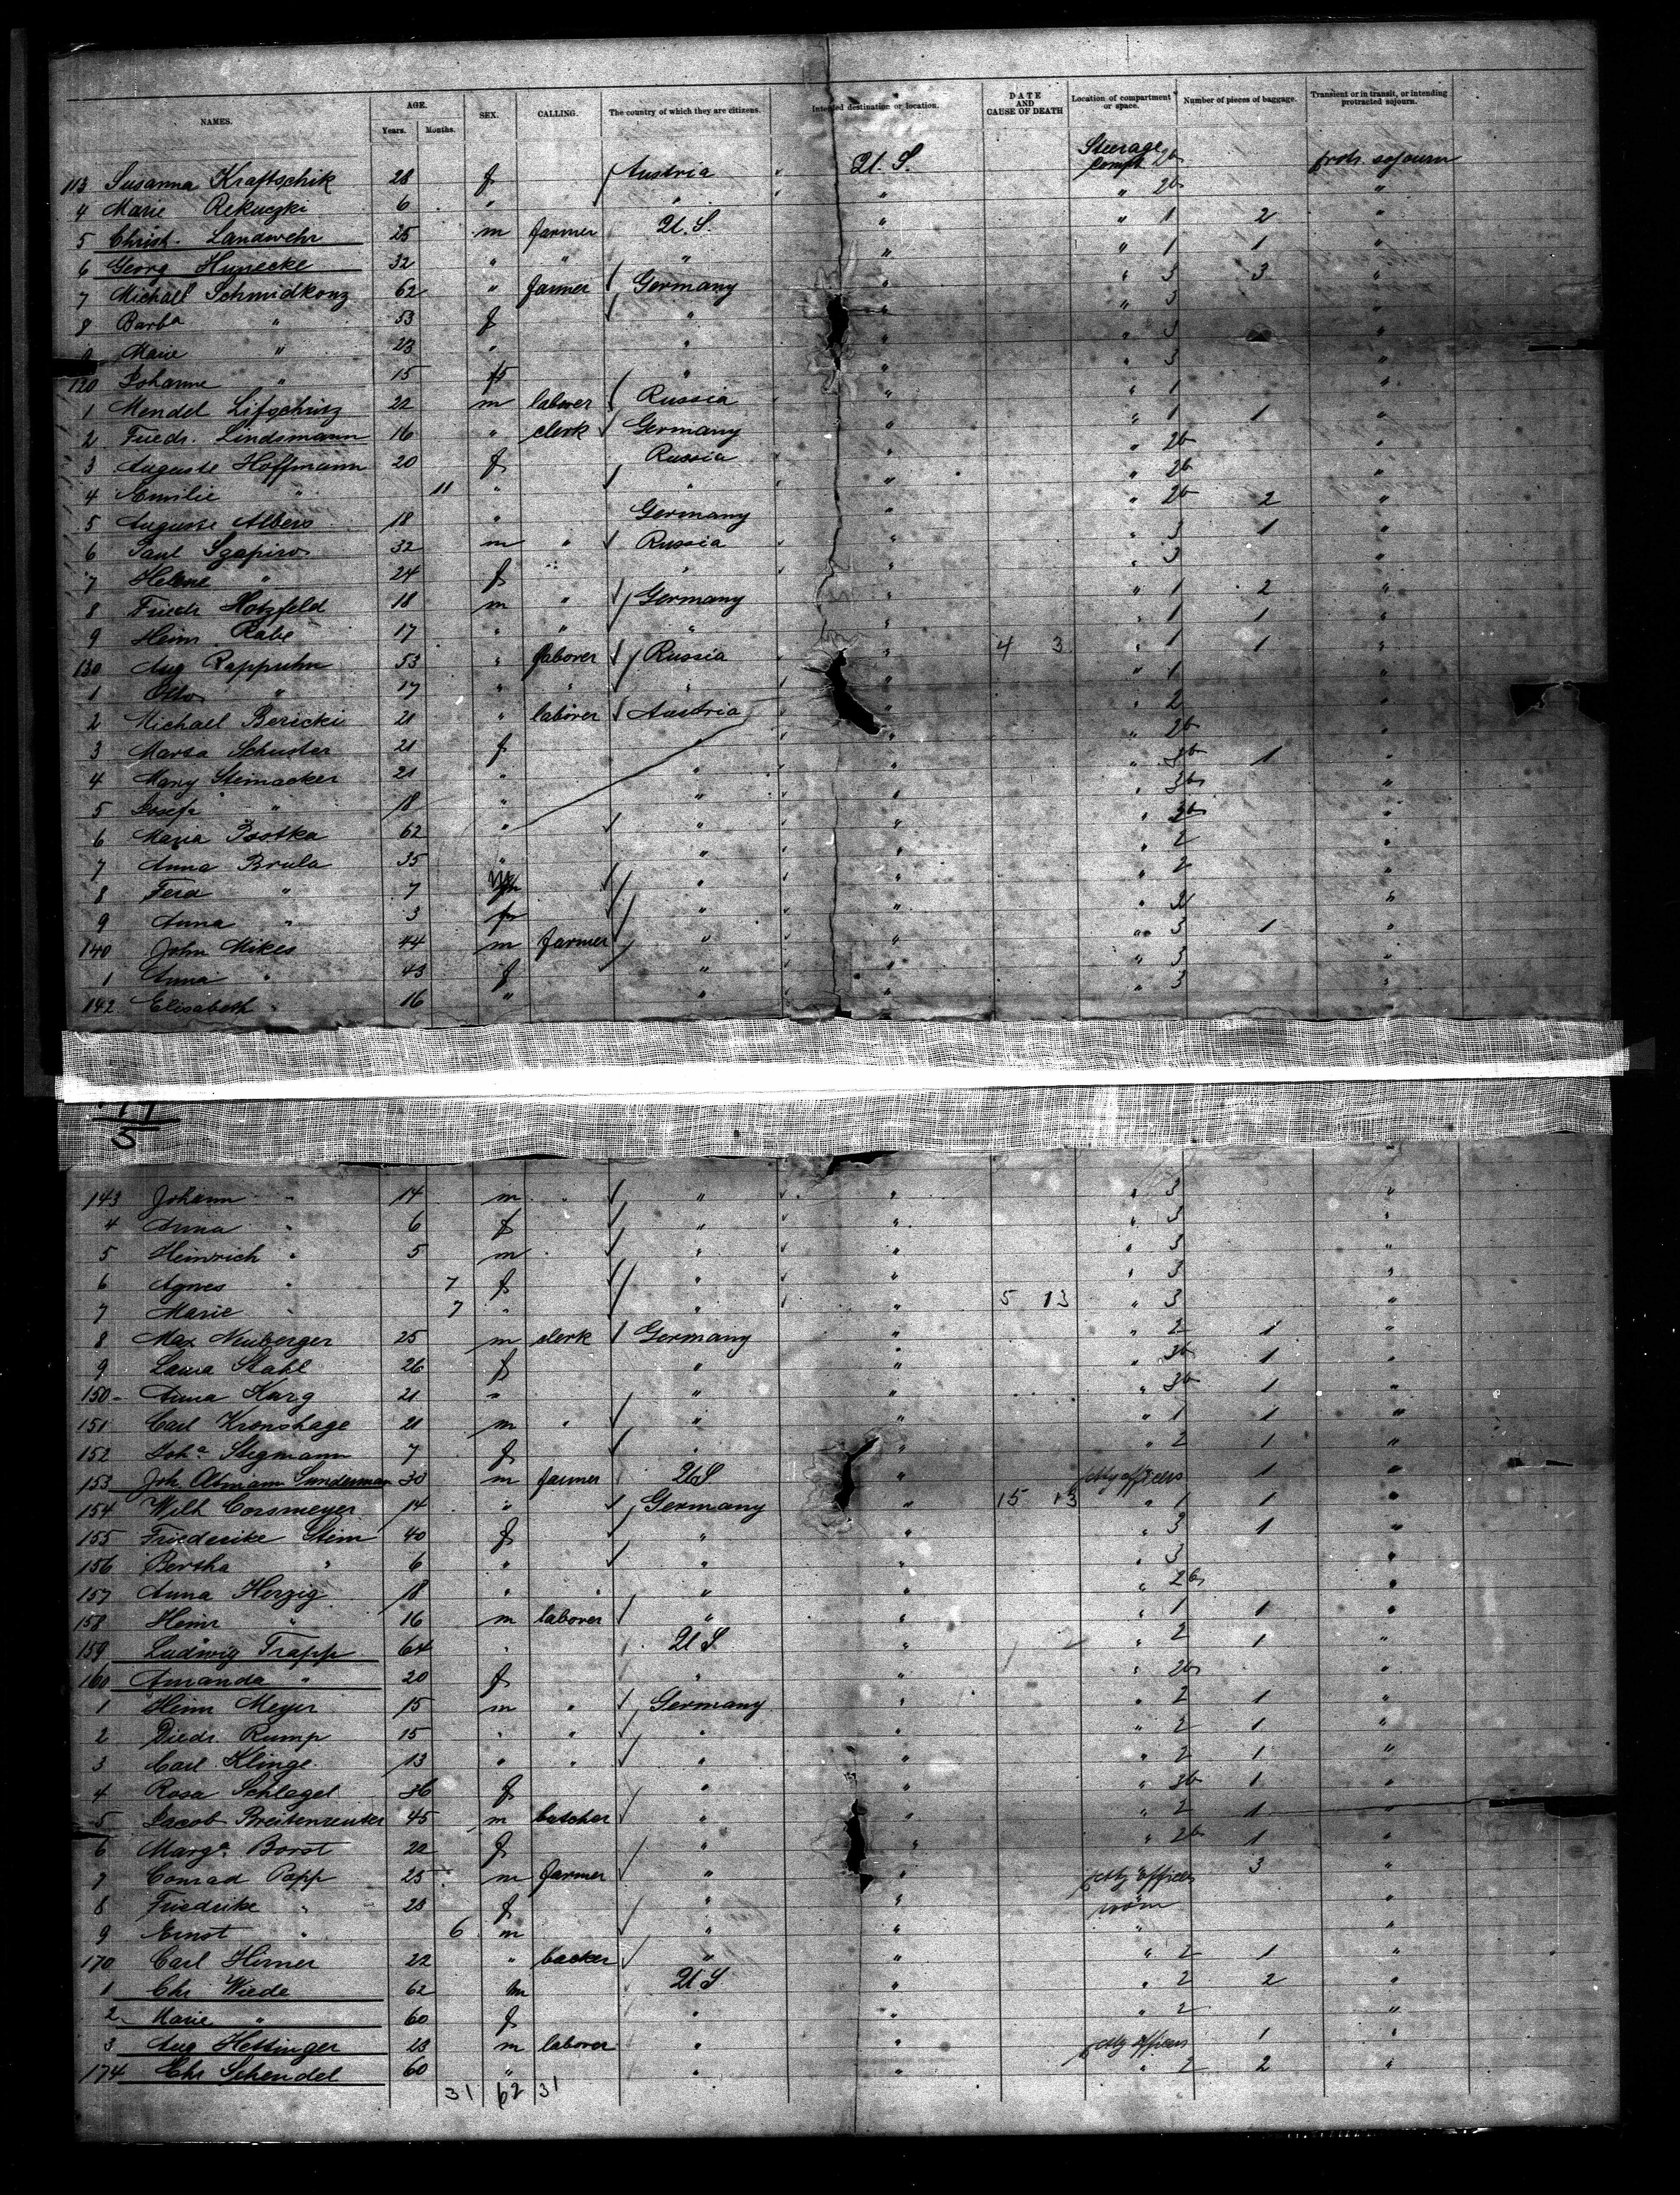 NAMES. AGE. Years. Months. SEX. CALLING. The country of which they are citizens. Intended destination or location. DATE AND CAUSE OF DEATH Location of compartment or space. Number of pieces of baggage. Transient or in transit, or intending protracted sojourn.
113 Susanna Kraftschik 28 f Austria U.S. Steerage Compt 2b protr. sojourn
4 Marie Rekuczki 6 " " " " 2b "
5 Christ. Landwehr 25 m farmer U.S. " " 1 2 "
6 Georg Hunecke 32 " " " " " 1 1 "
7 Michael Schmidkonz 62 " farmer Germany " " 3 3 "
8 Barba " 53 f " " " 3 "
9 Marie " 23 " " " " 3 "
120 Johanne " 15 f " " " 3 "
1 Mendel Lifschitz 22 m laborer Russia " " 1 "
2 Friedr. Lindemann 16 " clerk Germany " " 1 1 "
3 Auguste Hoffmann 20 f Russia " " 2b "
4 Emilie " 11 " " " " 2b "
5 Auguste Albers 18 " Germany " " 2b 2 "
6 Paul Szapiro 32 m " Russia " " 3 1 "
7 Helene " 24 f " " " 3 "
8 Friedr Hotzfeld 18 m " Germany " " 1 2 "
9 Heinr. Rabe 17 " " " " " 1 1 "
130 Aug Rappuhn 53 " laborer Russia " 4 3 " 1 1 "
1 Otto " 17 " " " " " 1 "
2 Michael Bericki 21 " laborer Austria " " 2 "
3 Marsa Schuster 21 f " " " 2b "
4 Mary Steinacker 21 " " " " 3b 1 "
5 Josefa " 18 " " " " 3b "
6 Maria Psotka 62 " " " " 2b "
7 Anna Brula 35 " " " " 2 "
8 Ferd " 7 m " " " 2 "
9 Anna " 3 f " " " 2 "
140 John Mikes 44 m farmer " " " 3 1 "
1 Anna " 43 f " " " 3 "
142 Elisabeth " 16 " " " " 3 "
5
143 Johann " 14 m " " " " 3 "
4 Anna " 6 f " " " 3 "
5 Heinrich " 5 m " " " 3 "
6 Agnes " 7 f " " " 3 "
7 Marie " 7 " " " 5 13 " 3 "
8 Max Neuberger 25 m clerk Germany " " 2 1 "
9 Laura Stahl 26 f " " " 3b 1 "
150 Anna Karg 21 " " " " 3b 1 "
151 Carl Kronshage 21 m " " " " 1 1 "
152 Joha Stegmann 7 f " " " 2 1 "
153 Joh. Altmann Sunderman 30 m farmer U S " petty officers 1 "
154 Wilh Corsmeyer 14 " Germany " 15 13 " 1 1 "
155 Friederike Stein 40 f " " " 3 1 "
156 Bertha " 6 " " " " 3 "
157 Anna Herzig 18 " " " " 2b "
158 Heinr " 16 m laborer " " " 1 1 "
159 Ludwig Trapp 64 " U S " " 2 1 "
160 Amanda " 20 f " " " 2b "
1 Heinr Meyer 15 m " Germany " " 2 1 "
2 Diedr. Rump 15 " " " " " 2 1 "
3 Carl Klinge 13 " " " " " 2 1 "
4 Rosa Schlagel 36 f " " " 3b 1 "
5 Jacob Breitenreuter 45 m butcher " " " 2 1 "
6 Marga. Borst 22 f " " " 2b 1 "
7 Conrad Popp 25 m farmer " " petty officers 3 "
8 Friedrike " 28 f " " room "
9 Ernst " 6 m " " " "
170 Carl Hirner 22 " backer " " " 2 1 "
1 Chr Wiede 62 m U S " " 2 2 "
2 Marie " 60 f " " " 2 "
3 Aug Hettinger 23 m laborer " " petty officers 1 "
174 Chr Schendel 60 " " " " 2 2 "
31 62 31